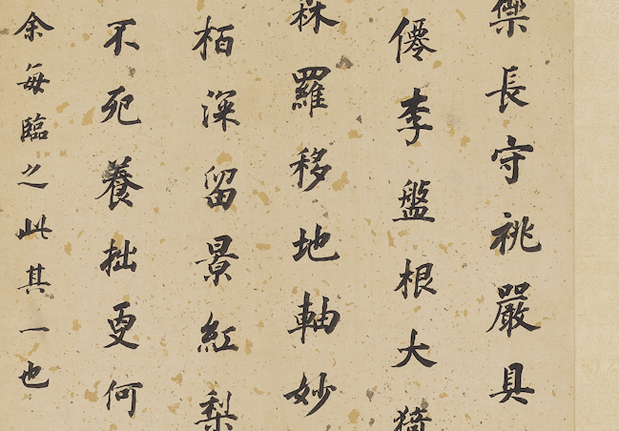 長守祧嚴具
僊李盤根大猗
森羅移地軸妙
栢深留景紅梨
不死養拙更何
余每臨之此其一也